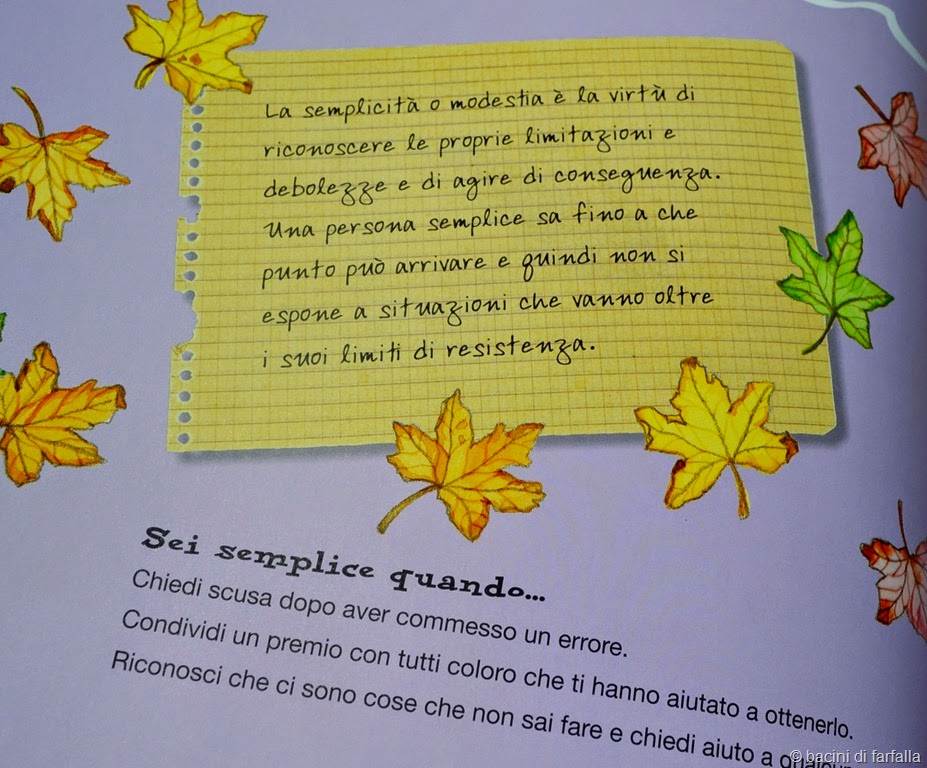 La semplicità o modestia è la virtù di
riconoscere le proprie limitazioni e
debolezze e di agire di conseguenza.
Una persona semplice sa fino a che
punto può arrivare e quindi non si
espone a situazioni che vanno oltre
i suoi limiti di resistenza.
Sei semplice quando...
Chiedi scusa dopo aver commesso un errore.
Condividi un premio con tutti coloro che ti hanno aiutato a ottenerlo.
Riconosci che ci sono cose che non sai fare e chiedi aiuto a
© bacini di farfalla